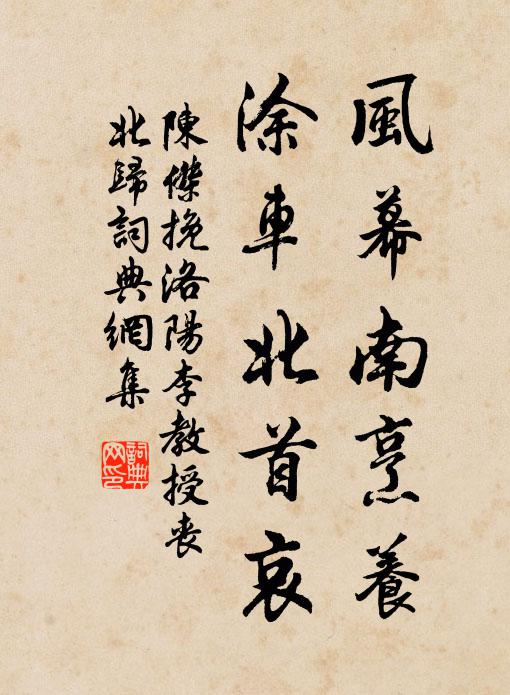 風幕南烹養
涂車北首哀
陳傑挽洛陽李教授喪
北歸詞典網集
詞典
网印